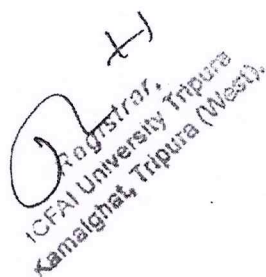 Registrar,
ICFAI University Tripura
Kamalghat, Tripura (West).